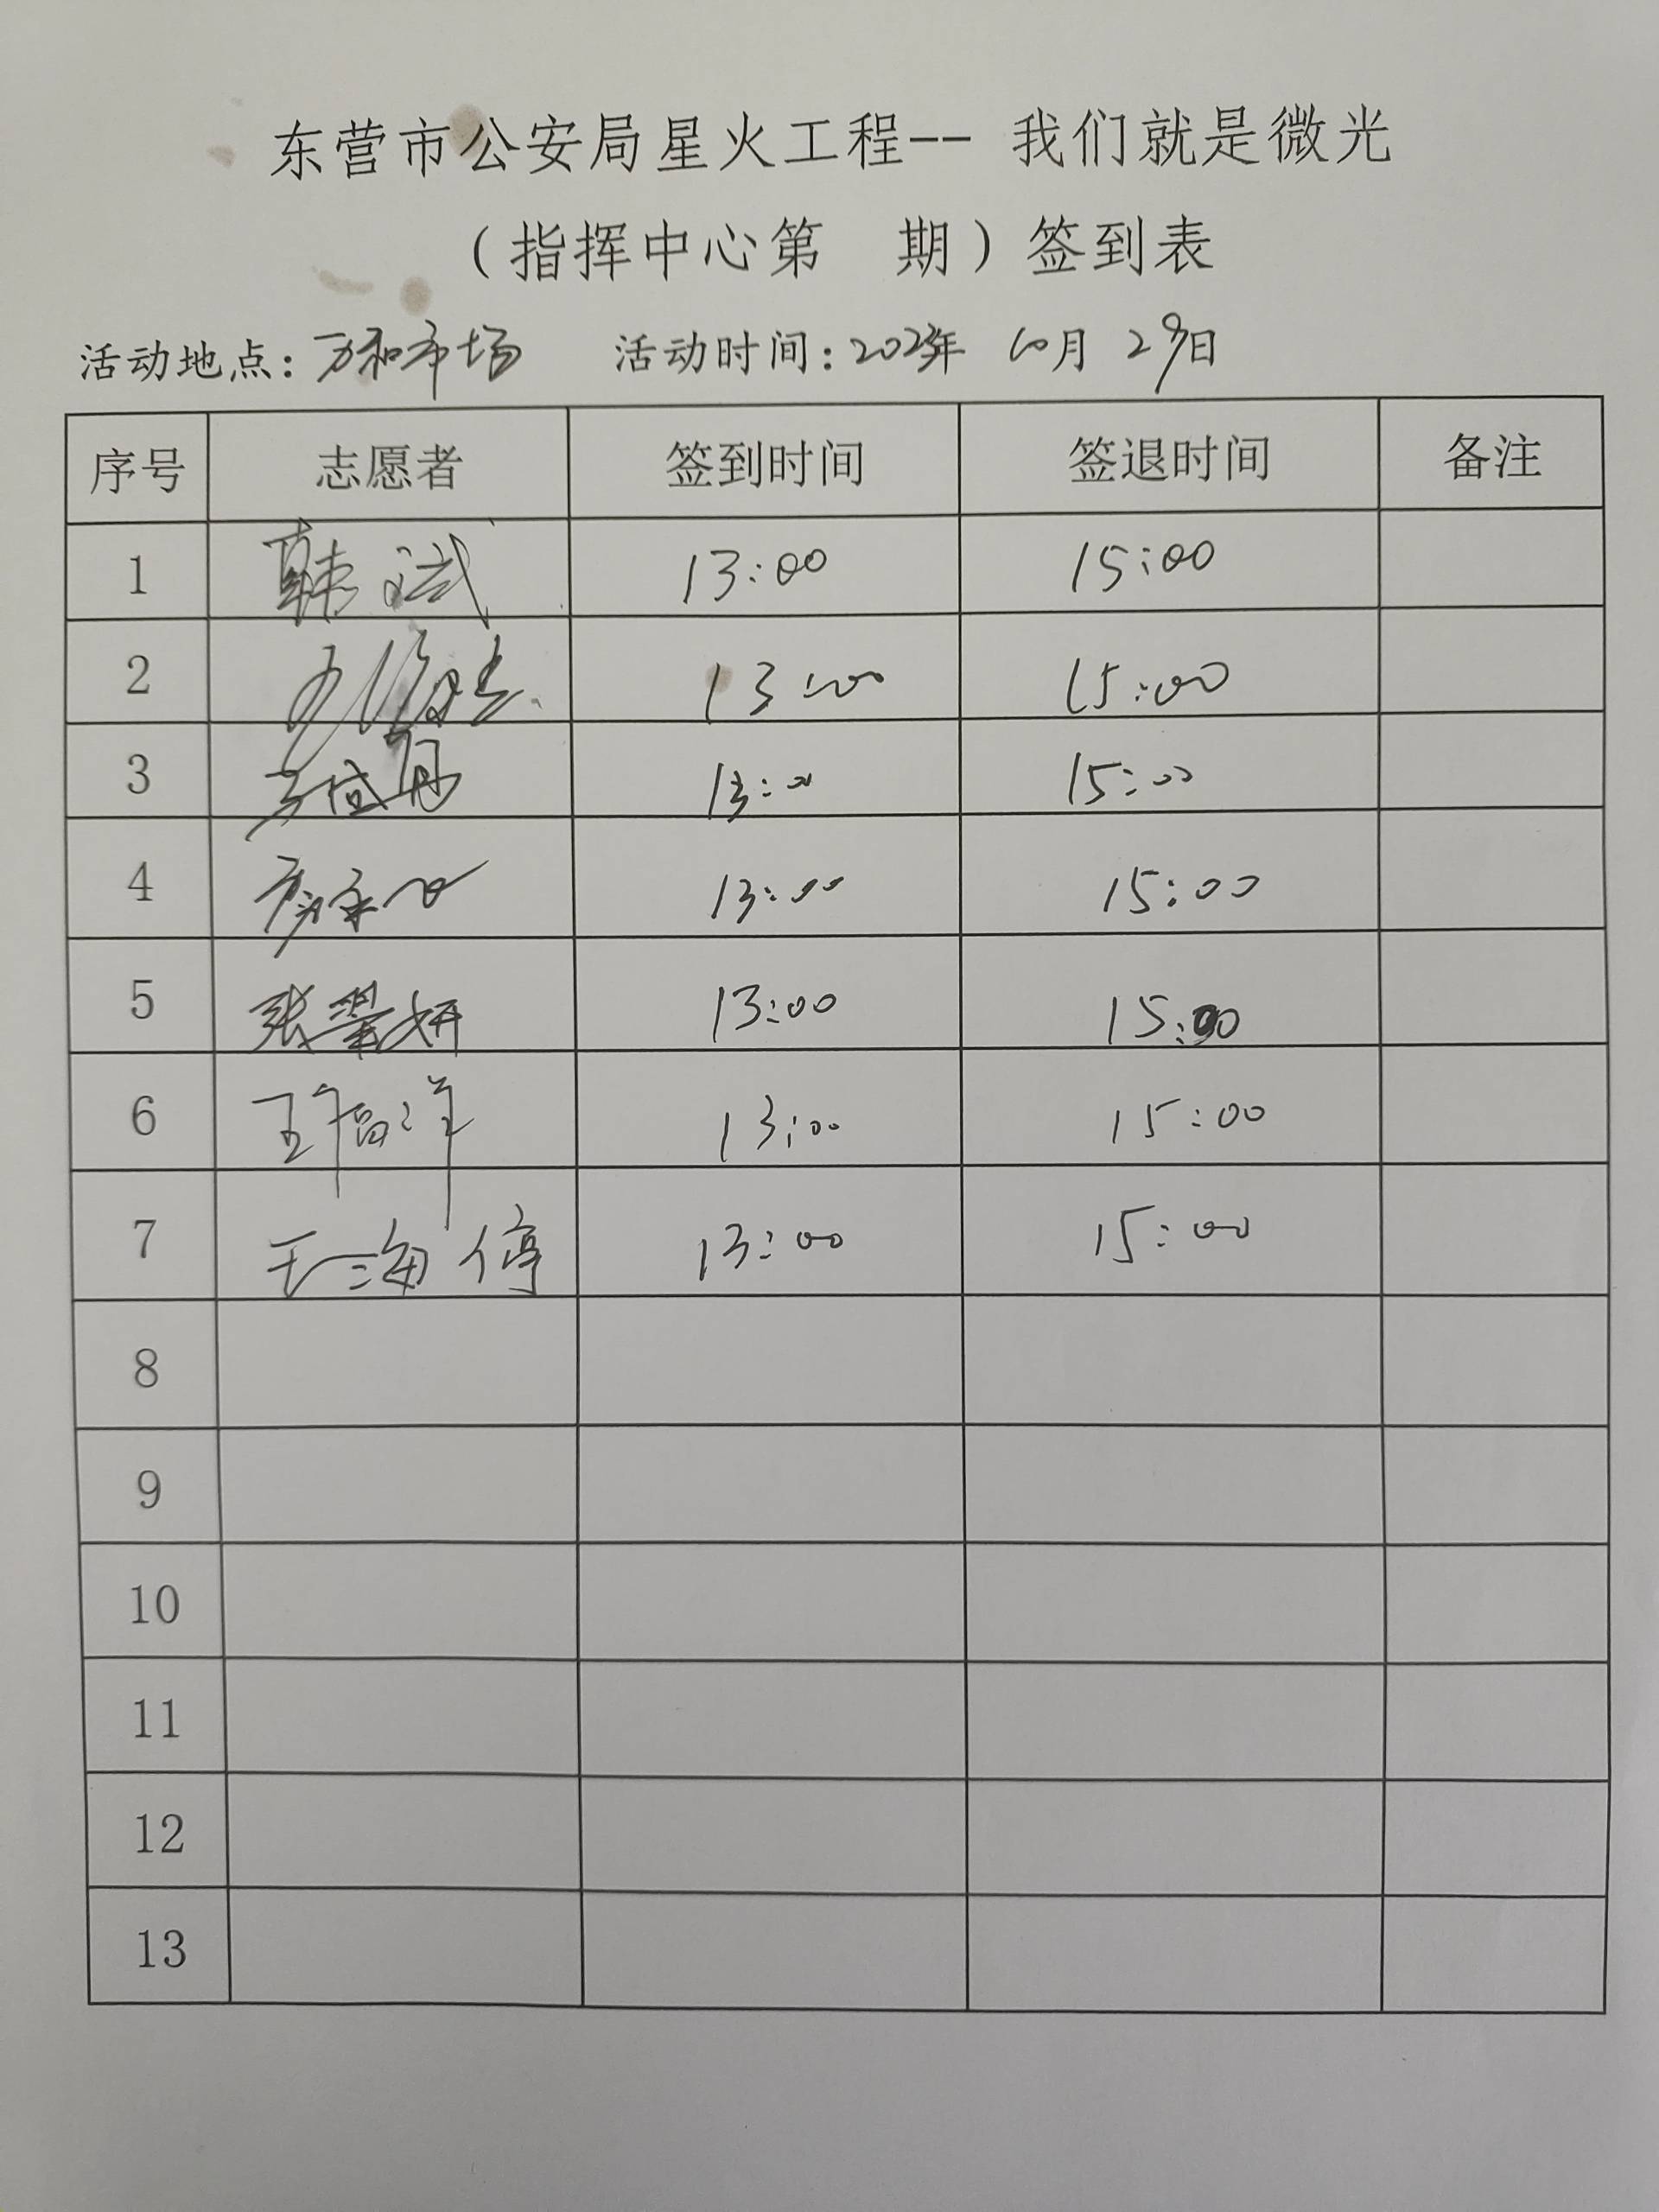 东营市公安局星火工程-- 我们就是微光
（指挥中心第 期）签到表
活动地点：万和市场 活动时间：2023年 10月 29日
序号 志愿者 签到时间 签退时间 备注
1 韩斌 13:00 15:00
2 13:00 15:00
3 13:00 15:00
4 13:00 15:00
5 张翠妍 13:00 15:00
6 13:00 15:00
7 王海停 13:00 15:00
8
9
10
11
12
13